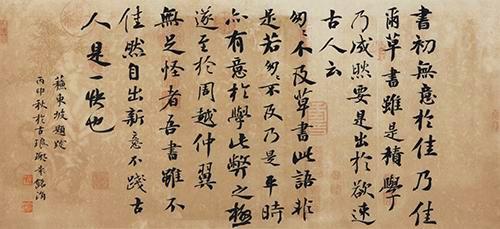 書初無意於佳乃佳
爾草書雖是積學
乃成然要是出於欲速
古人云
匆匆不及草書此語非
是若匆匆不及乃是平時
亦有意於學此弊之極
遂至於周越仲翼
無足怪者吾書雖不
佳然自出新意不踐古
人是一快也
蘇東坡題跋
丙申秋於古琅琊